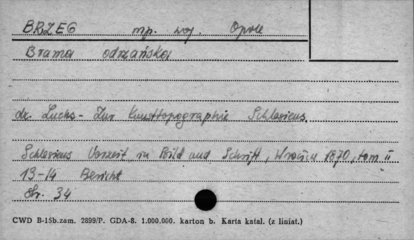 BRZEG mp. woj. Opole
Brama odrzańska
dr. Luchs - Zur Kunsttopographie Schlesiens.
Schlesiens Vorzeit in Bild und Schrift, Wrocław 1870, tom II
13-14 Bericht
Str. 34
CWD B-15b.zam. 2899/P. GDA-8. 1.000.000. karton b. Karta katal. (z liniat.)